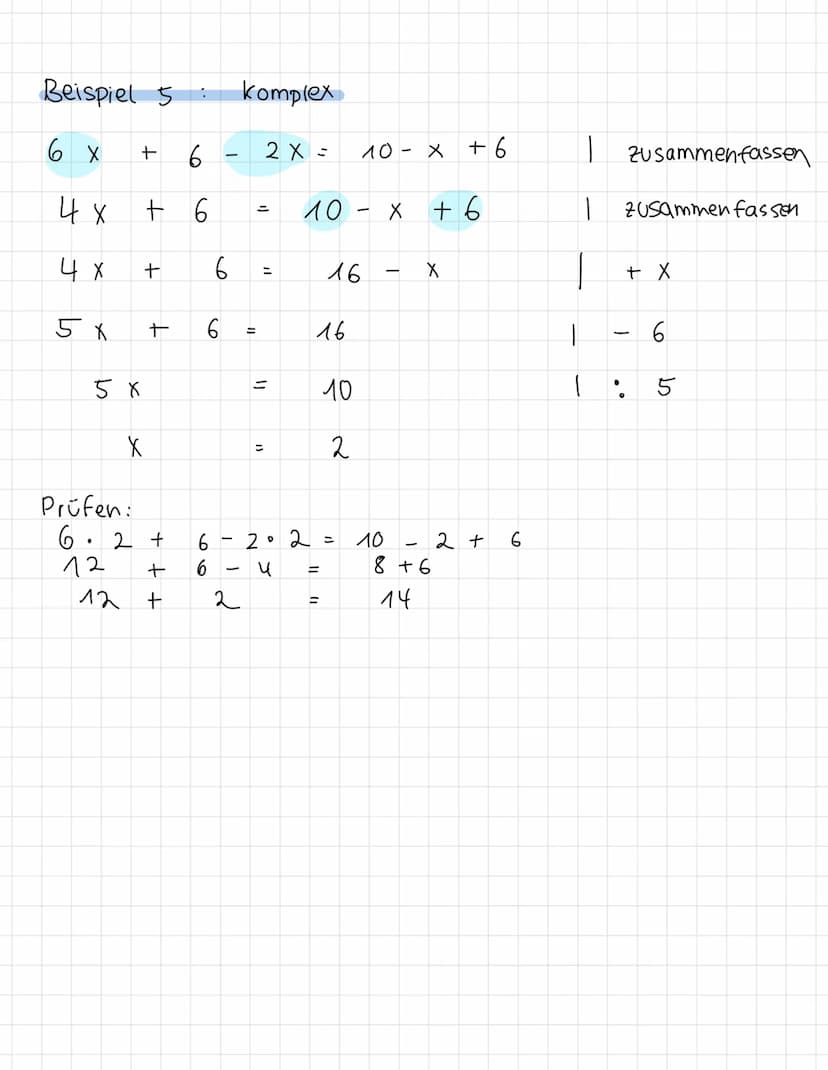 Beispiel 5 : komplex
6 x + 6 - 2 x = 10 - x + 6 | zusammenfassen
4 x + 6 = 10 - x + 6 | zusammenfassen
4 x + 6 = 16 - x | + x
5 x + 6 = 16 | - 6
5 x = 10 | : 5
x = 2
Prüfen:
6 · 2 + 6 - 2 · 2 = 10 - 2 + 6
12 + 6 - 4 = 8 + 6
12 + 2 = 14